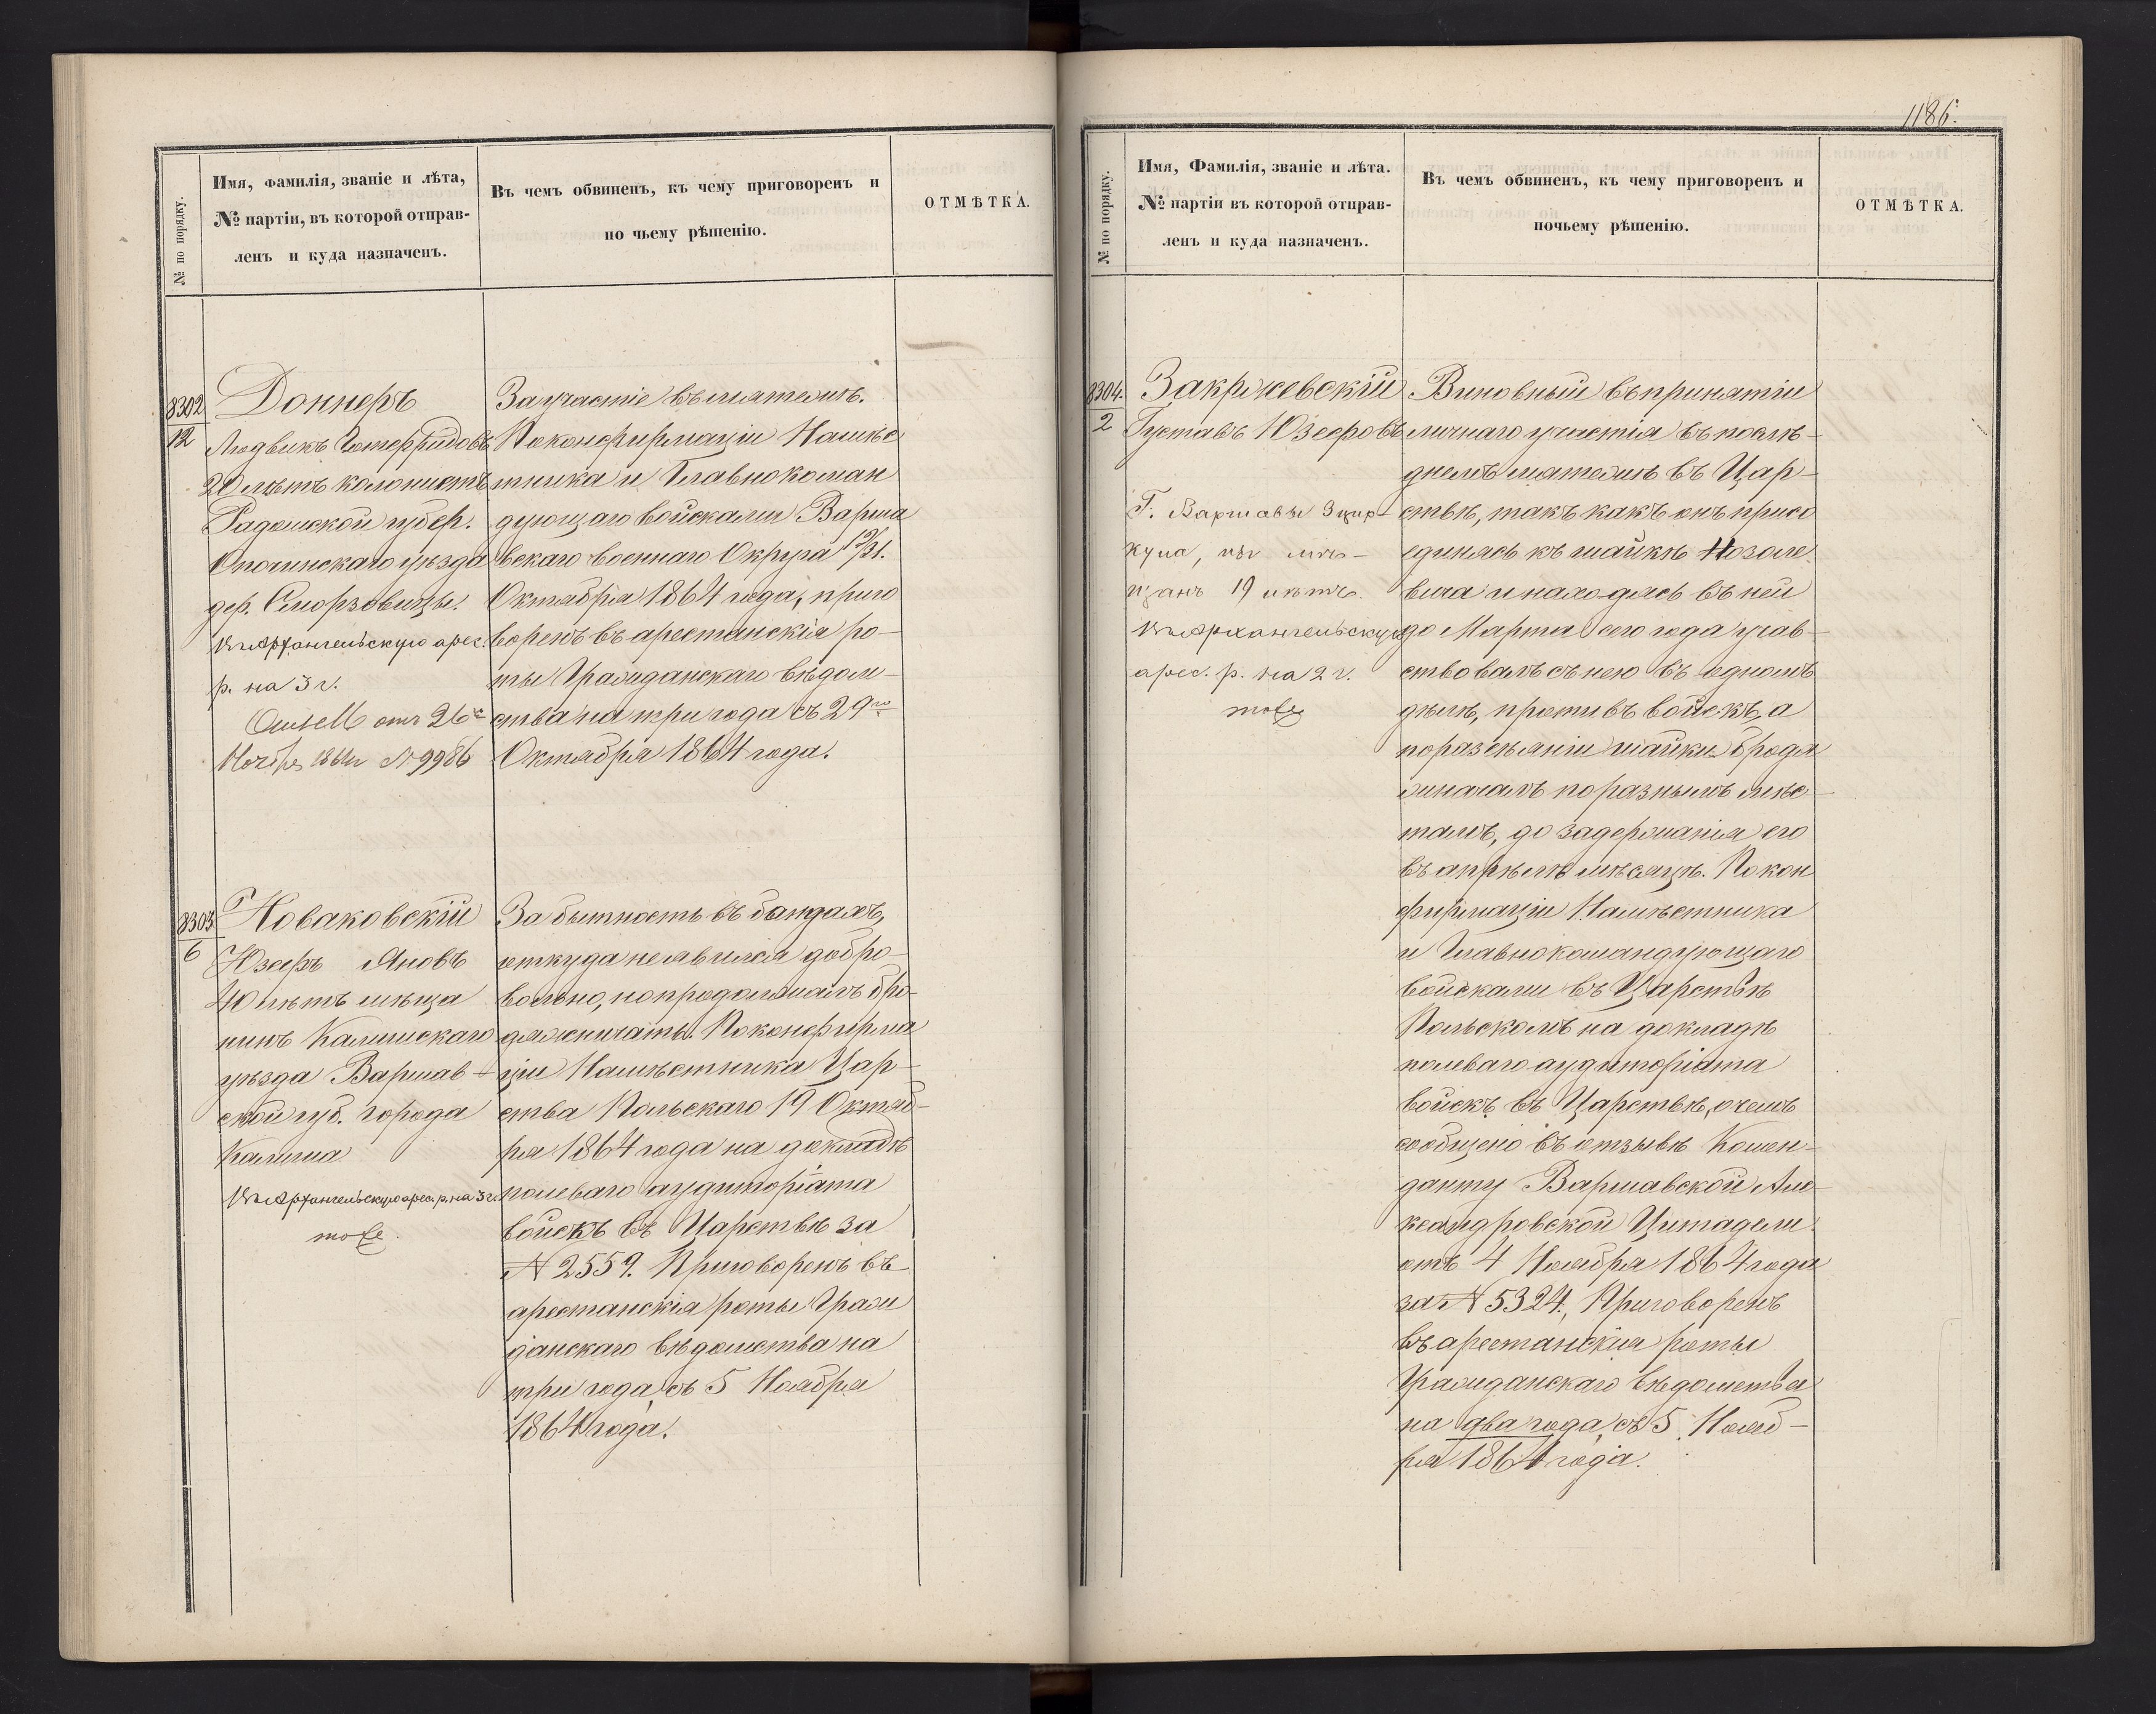 1186.
№ по порядку.
Имя, фамилія, званіе и лѣта,
№ партіи, въ которой отправ-
ленъ и куда назначенъ.
Въ чемъ обвиненъ, къ чему приговоренъ и
по чьему рѣшенію.
ОТМѢТКА.
8302
12
Доннеръ
Людвикъ Готфридовъ
20 лѣтъ колонистъ
Радомской губер.
Опочинскаго уѣзда
дер.
Въ Архангельскую арес.
р. на 3 г.
отъ 26го
Ноября 1864 г. №9986
За участіе въ мятежѣ.
По конфирмаціи Намѣс
тника и Главнокоман
дующаго войсками Варша
вскаго военнаго Округа 19/31.
Октября 1864 года, приго
воренъ въ арестанскія ро-
ты Гражданскаго вѣдом-
ства на три года съ 29го
Октября 1864 года.
8303
6
Новаковскій
Юзефъ Яновъ
40 лѣтъ мѣща
нинъ Калишскаго
уѣзда Варшав-
ской губ. города
Калиша
Въ Архангельскую арес. р. на 3 г.
тоже.
За бытность въ бандахъ,
откуда не явился добро-
вольно, но продолжалъ бро-
дяжничать. По конфирма
ціи Намѣстника Цар-
ства Польскаго 19 Октяб-
ря 1864 года на докладѣ
полеваго аудиторіата
войскъ въ Царствѣ за
№ 2559. Приговоренъ въ
арестанскія роты Граж
данскаго вѣдомства на
три года, съ 5 Ноября
1864 года.
№ по порядку.
Имя, Фамилія, званіе и лѣта.
№ партіи въ которой отправ-
ленъ и куда назначенъ.
Въ чемъ обвиненъ, къ чему приговоренъ и
почьему рѣшенію.
ОТМѢТКА.
8304.
2
Закржевскій
Густавъ Юзефовъ
Г. Варшавы 3 цир-
кула, изъ мѣ-
щанъ 19 лѣтъ.
Въ Архангельскую
арес. р. на 2 г.
тоже
Виновный въ принятіи
личнаго участія въ послѣ-
днемъ мятежѣ въ Цар-
ствѣ, такъ какъ онъ присо
единясь къ шайкѣ
вича и находясь въ ней
до Марта сего года учав-
ствовалъ съ нею въ одномъ
дѣлѣ, противъ войскъ, а
по разсѣяніи шайки бродя
жничалъ по разнымъ мѣс-
тамъ, до задержанія его
въ апрѣлѣ мѣсяцѣ. По кон
фирмаціи Намѣстника
и Главнокомандующаго
войсками въ Царствѣ
Польскомъ на докладѣ
полеваго аудиторіата
войскъ въ Царствѣ, о чемъ
сообщено въ отзывѣ Комен-
данту Варшавской Але-
ксандровской Цитадели
отъ 4 Ноября 1864 года
за № 5324., Приговоренъ
въ арестанскія роты
Гражданскаго вѣдомства
на два года, съ 5 Нояб-
ря 1864 года.